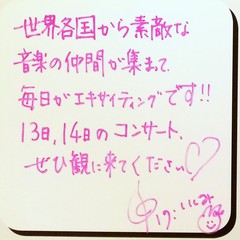 世界各国から素敵な
音楽の仲間が集まって、
毎日がエキサイティングです!!
13日,14日のコンサート、
ぜひ観に来てください♡